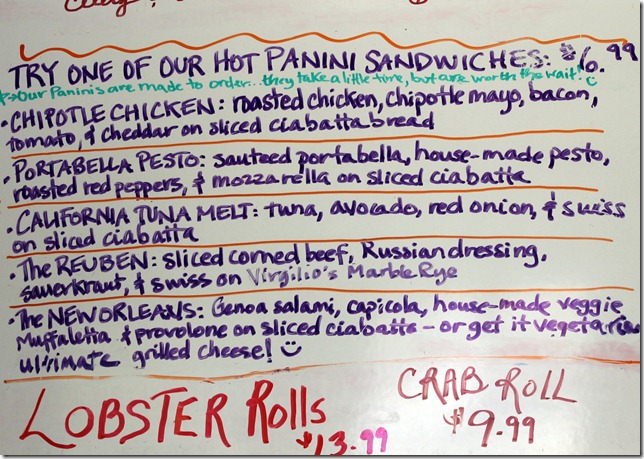 TRY ONE OF OUR HOT PANINI SANDWICHES: $6.99
Our Paninis are made to order...they take a little time, but are worth the wait!
• CHIPOTLE CHICKEN: roasted chicken, chipotle mayo, bacon,
tomato, & cheddar on sliced ciabatta bread
• PORTABELLA PESTO: sauteed portabella, house-made pesto,
roasted red peppers, & mozzarella on sliced ciabatta
• CALIFORNIA TUNA MELT: tuna, avocado, red onion, & swiss
on sliced ciabatta
• The REUBEN: sliced corned beef, Russian dressing,
sauerkraut, & swiss on Virgilio's Marble Rye
• The NEW ORLEANS: Genoa salami, capicola, house-made veggie
Muffaletta & provolone on sliced ciabatta - or get it vegetarian
ultimate grilled cheese!
LOBSTER Rolls
$13.99
CRAB ROLL
$9.99